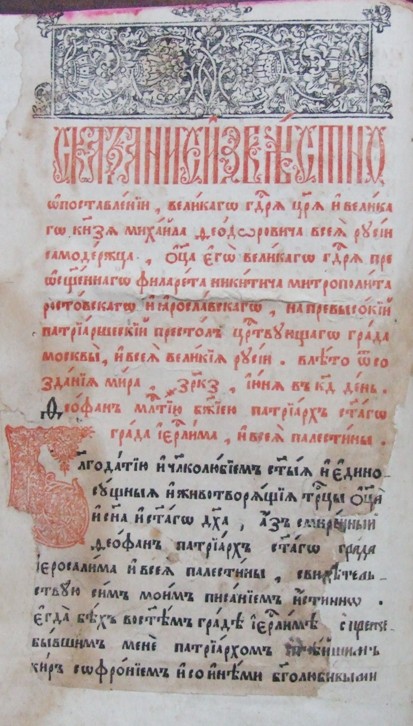 СКАЗАНИЕ ИЗВѢСТНО
ѡпоставленїи, великагѡ гд҃рѧ цр҃ѧ и҆ велика
гѡ кн҃зѧ михаила ѳеодѡровича всеѧ̀ рꙋсїи
самодержца, ѻ҆ц҃а є҆гѡ̀ великагѡ гд҃рѧ пре
ѡ҆сщ҃еннагѡ филарета никитича митрополита
ростовскагѡ и҆ ꙗ҆рославскагѡ, на превысокїй
патрїаршескїй престол цр҃твꙋющагѡ гра́да
москвы̀, и҆ всеѧ̀ великїѧ рꙋсїи. влѣ́то ѿ со
зданїѧ мира, ҂зр҃кз, і҆ю́нѧ в҃ к҃д день.
Ѳеофан мл҃тїю бж҃їею патрїархъ ст҃а́гѡ
гра́да і҆ер҃лима, и҆ всеѧ̀ палестины.
Бл҃годатїю и҆ чл҃колюбїемъ ст҃ы́ѧ и҆ є҆ди́но
сꙋ́щныѧ и҆ животворѧ́щїѧ тр҃цы ѻ҆ц҃а
и҆ сн҃а и҆ ст҃а́гѡ дх҃а, а҆́зъ смѣре́нный
ѳеофан патрїархъ ст҃а́гѡ гра́да
і҆еросалима и҆ всеѧ̀ палестины, свидѣтель
ствꙋю си́мъ мои́мъ писанїемъ и҆́стиннѡ.
є҆гда̀ бѣ́хъ восте́мъ гра́дѣ і҆ер҃лимѣ с преже
бы́вшимъ менѐ патрїархомъ
кир софро́нїемъ и҆ со и҆нѣ́ми бг҃олюбивыми